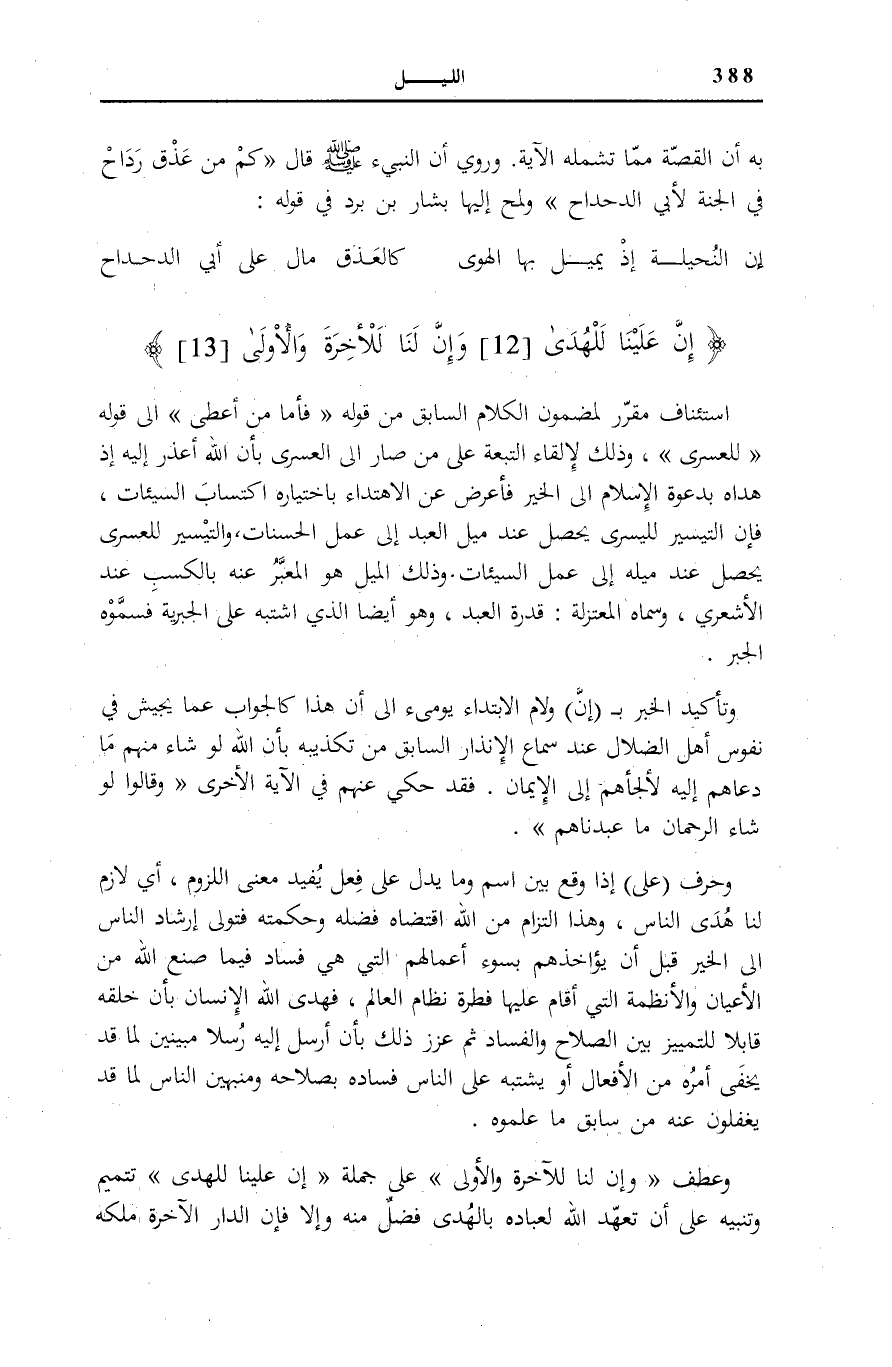 388
الليـــــل
به أن القصّة ممّا تشمله الآية. وروي أن النبيء ﷺ قال «كمْ من عَذْق رَدَاحْ
في الجنة لأبي الدحداح » ولمح إليها بشار بن برد في قوله :
إن النُحيلــة إذْ يميــل بها الهوى كالعَـذق مال على أبي الدحـداح
﴿ إِنَّ عَلَيْنَا لَلْهُدَىٰ [12] وَإِنَّ لَنَا لَلْأَخِرَةَ وَالْأُولَىٰ [13] ﴾
استئناف مقرّر لمضمون الكلام السابق من قوله « فأما من أعطى » الى قوله
« للعسرى » ، وذلك لإلقاء التبعة على من صار الى العسرى بأن الله أعذر إليه إذ
هداه بدعوة الإسلام الى الخير فأعرض عن الاهتداء باختياره اكتسابَ السيئات ،
فإن التيسير لليسرى يحصل عند ميل العبد إلى عمل الحسنات، والتيْسير للعسرى
يحصل عند ميله إلى عمل السيئات. وذلك الميل هو المعبَّرُ عنه بالكسبِ عند
الأشعري ، وسماه المعتزلة : قدرة العبد ، وهو أيضا الذي اشتبه على الجبرية فسمَّوْه
الجبر .
وتأكيد الخبر بـ (إنَّ) ولام الابتداء يومىء الى أن هذا كالجواب عما يجيش في
نفوس أهل الضلال عند سماع الإنذار السابق من تكذيبه بأن الله لو شاء منهم مَا
دعاهم إليه لألجأهم إلى الإيمان . فقد حكي عنهم في الآية الأخرى « وقالوا لو
شاء الرحمان ما عبدناهم » .
وحرف (على) إذا وقع بين اسم وما يدل على فِعل يُفيد معنى اللزوم ، أي لازم
لنا هُدَى الناس ، وهذا التزام من الله اقتضاه فضله وحكمته فتولى إرشاد الناس
الى الخير قبل أن يؤاخذهم بسوء أعمالهم التي هي فساد فيما صنع الله من
الأعيان والأنظمة التي أقام عليها فطرة نظام العالم ، فهدى الله الإنسان بأن خلقه
قابلا للتمييز بين الصلاح والفساد ثم عزز ذلك بأن أرسل إليه رُسلا مبينين لما قد
يخفَى أمرُه من الأفعال أو يشتبه على الناس فساده بصلاحه ومنبهين الناس لما قد
يغفلون عنه من سابق ما علموه .
وعطف « وإن لنا للآخرة والأولى » على جملة « إن علينا للهدى » تتميم
وتنبيه على أن تعهّد الله لعباده بالهُدى فضلٌ منه وإلا فإن الدار الآخرة ملكه